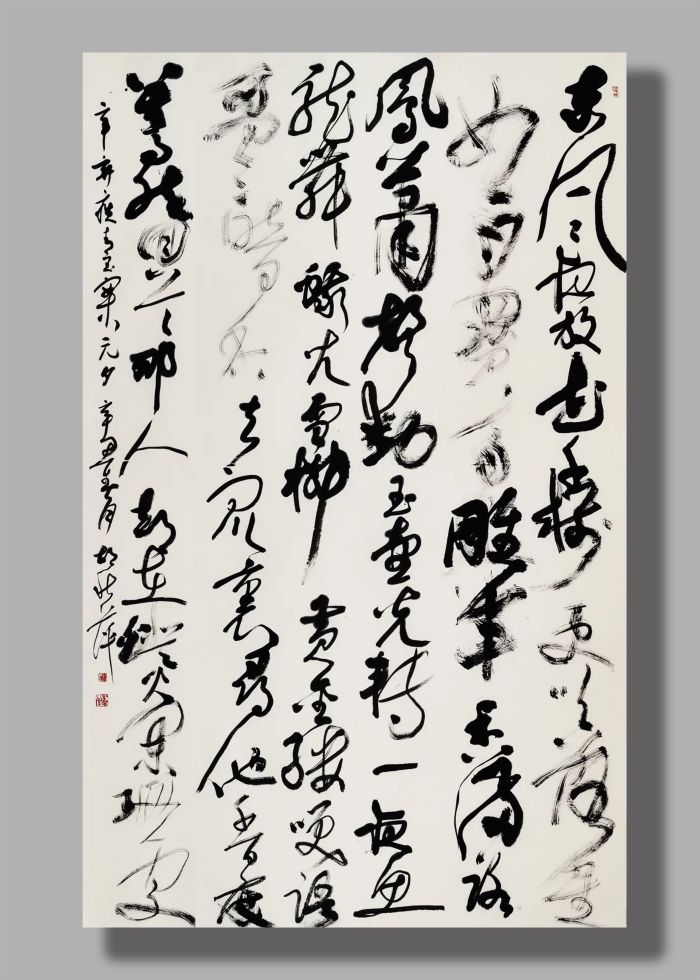 東風夜放花千樹更吹落星
如雨寶馬雕車香滿路
鳳簫聲動玉壺光轉一夜魚
龍舞蛾兒雪柳黃金縷笑語
盈盈暗香去衆裏尋他千百度
驀然回首那人却在燈火闌珊處
辛棄疾青玉案元夕辛丑月胡秋萍